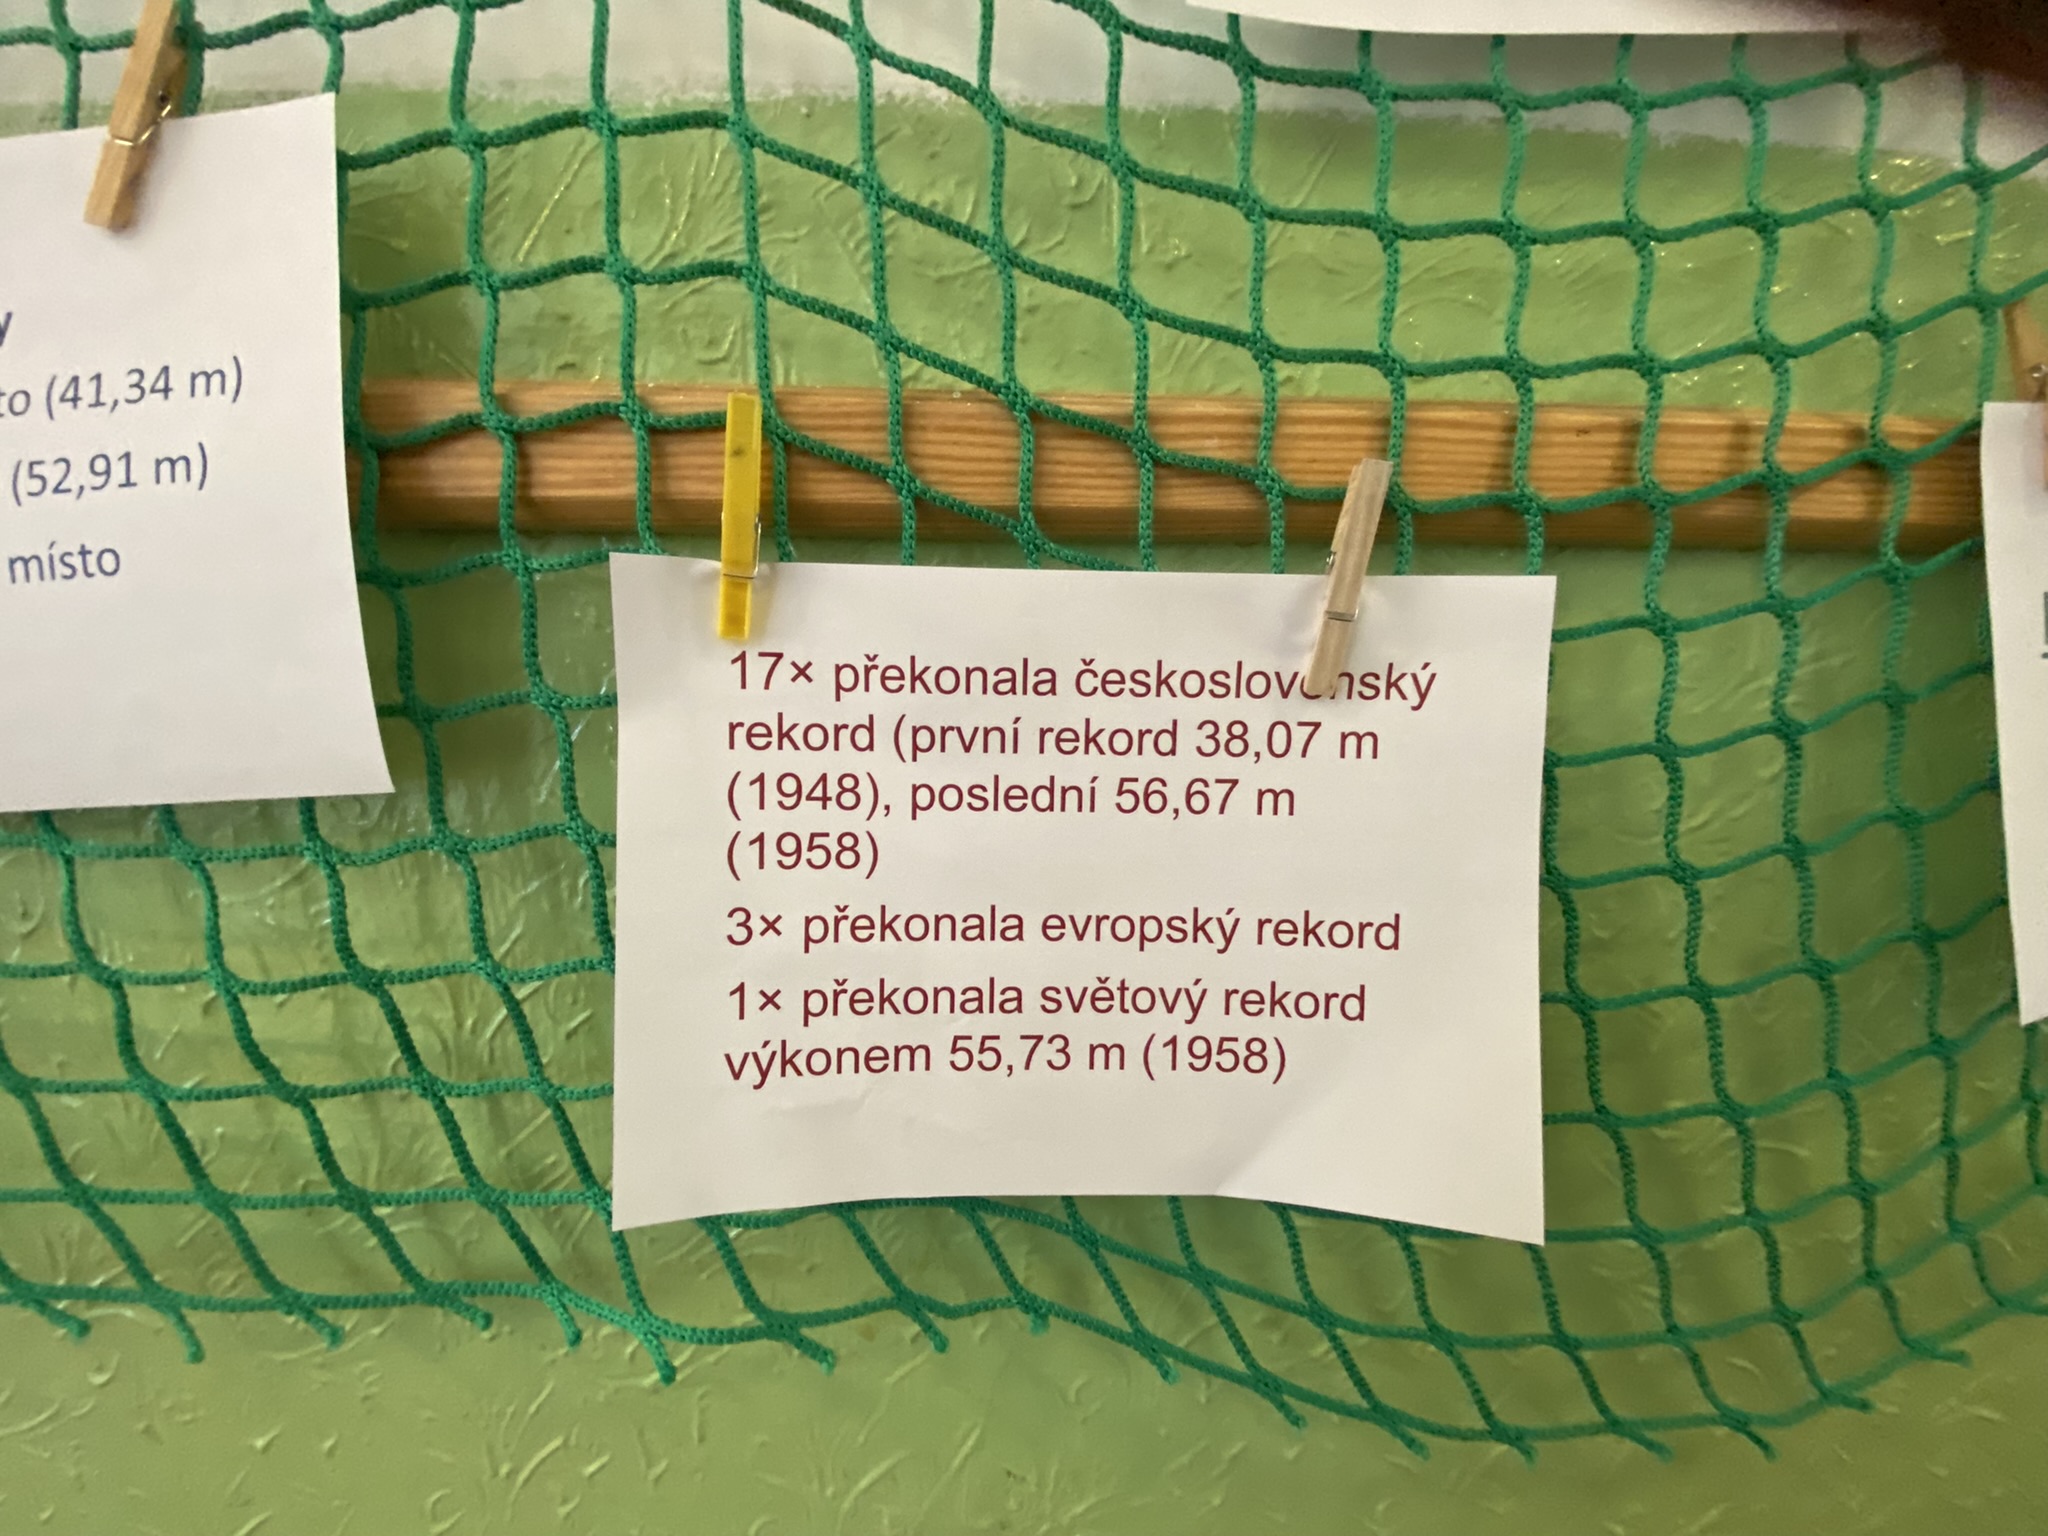 y
to (41,34 m)
(52,91 m)
místo
17× překonala československý
rekord (první rekord 38,07 m
(1948), poslední 56,67 m
(1958)
3× překonala evropský rekord
1× překonala světový rekord
výkonem 55,73 m (1958)